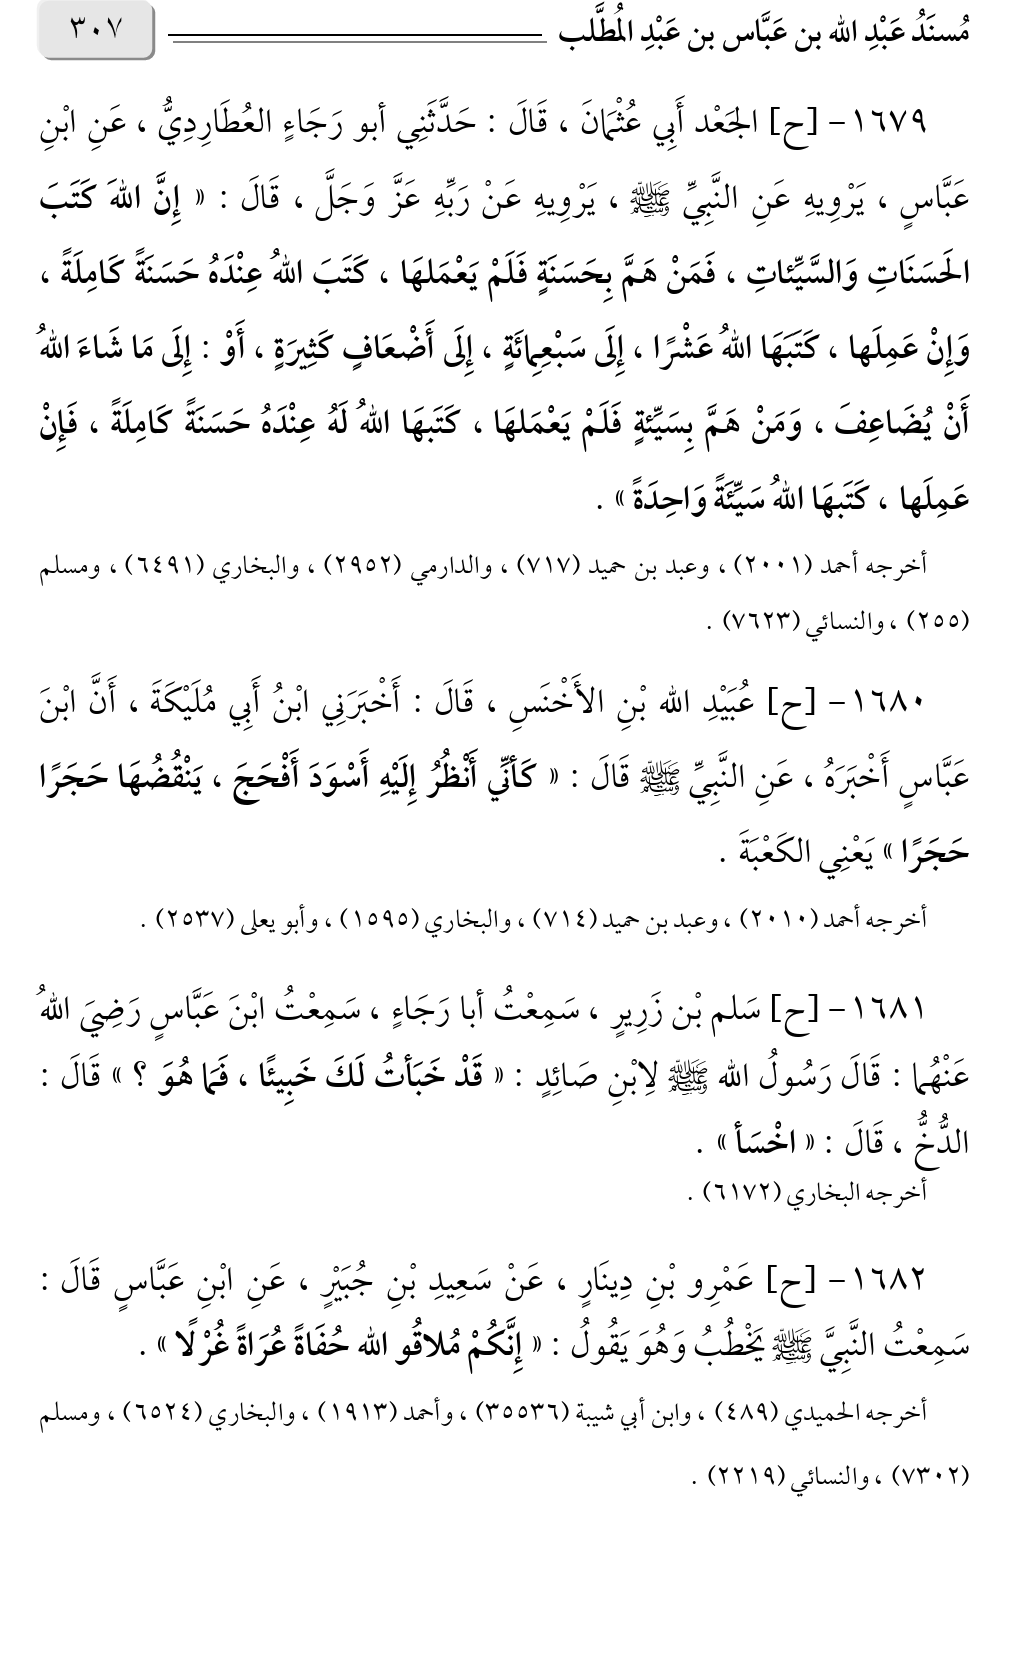 مُسنَدُ عَبْدِ الله بن عَبَّاس بن عَبْدِ المُطَّلب
٣٠٧
١٦٧٩- [ح] الجَعْد أَبِي عُثْمَانَ ، قَالَ : حَدَّثَنِي أبو رَجَاءٍ العُطَارِدِيُّ ، عَنِ ابْنِ
عَبَّاسٍ ، يَرْوِيهِ عَنِ النَّبِيِّ ﷺ ، يَرْوِيهِ عَنْ رَبِّهِ عَزَّ وَجَلَّ ، قَالَ : « إِنَّ اللهَ كَتَبَ
الحَسَنَاتِ وَالسَّيِّئاتِ ، فَمَنْ هَمَّ بِحَسَنَةٍ فَلَمْ يَعْمَلهَا ، كَتَبَ اللهُ عِنْدَهُ حَسَنَةً كَامِلَةً ،
وَإِنْ عَمِلَها ، كَتَبَهَا اللهُ عَشْرًا ، إِلَى سَبْعِمِائَةٍ ، إِلَى أَضْعَافٍ كَثِيرَةٍ ، أَوْ : إِلَى مَا شَاءَ اللهُ
أَنْ يُضَاعِفَ ، وَمَنْ هَمَّ بِسَيِّئةٍ فَلَمْ يَعْمَلهَا ، كَتَبَهَا اللهُ لَهُ عِنْدَهُ حَسَنَةً كَامِلَةً ، فَإِنْ
عَمِلَها ، كَتَبهَا اللهُ سَيِّئَةً وَاحِدَةً » .
أخرجه أحمد (٢٠٠١) ، وعبد بن حميد (٧١٧) ، والدارمي (٢٩٥٢) ، والبخاري (٦٤٩١) ، ومسلم
(٢٥٥) ، والنسائي (٧٦٢٣) .
١٦٨٠- [ح] عُبَيْدِ الله بْنِ الأَخْنَسِ ، قَالَ : أَخْبَرَنِي ابْنُ أَبِي مُلَيْكَةَ ، أَنَّ ابْنَ
عَبَّاسٍ أَخْبَرَهُ ، عَنِ النَّبِيِّ ﷺ قَالَ : « كَأنِّي أَنْظُرُ إِلَيْهِ أَسْوَدَ أَفْحَجَ ، يَنْقُضُهَا حَجَرًا
حَجَرًا » يَعْنِي الكَعْبَةَ .
أخرجه أحمد (٢٠١٠) ، وعبد بن حميد (٧١٤) ، والبخاري (١٥٩٥) ، وأبو يعلى (٢٥٣٧) .
١٦٨١- [ح] سَلم بْن زَرِيرٍ ، سَمِعْتُ أبا رَجَاءٍ ، سَمِعْتُ ابْنَ عَبَّاسٍ رَضِيَ اللهُ
عَنْهُما : قَالَ رَسُولُ الله ﷺ لِابْنِ صَائِدٍ : « قَدْ خَبَأتُ لَكَ خَبِيئًا ، فَمَا هُوَ ؟ » قَالَ :
الدُّخُّ ، قَالَ : « اخْسَأ » .
أخرجه البخاري (٦١٧٢) .
١٦٨٢- [ح] عَمْرِو بْنِ دِينَارٍ ، عَنْ سَعِيدِ بْنِ جُبَيْرٍ ، عَنِ ابْنِ عَبَّاسٍ قَالَ :
سَمِعْتُ النَّبِيَّ ﷺ يَخْطُبُ وَهُوَ يَقُولُ : « إِنَّكُمْ مُلاقُو الله حُفَاةً عُرَاةً غُرْلًا » .
أخرجه الحميدي (٤٨٩) ، وابن أبي شيبة (٣٥٥٣٦) ، وأحمد (١٩١٣) ، والبخاري (٦٥٢٤) ، ومسلم
(٧٣٠٢) ، والنسائي (٢٢١٩) .